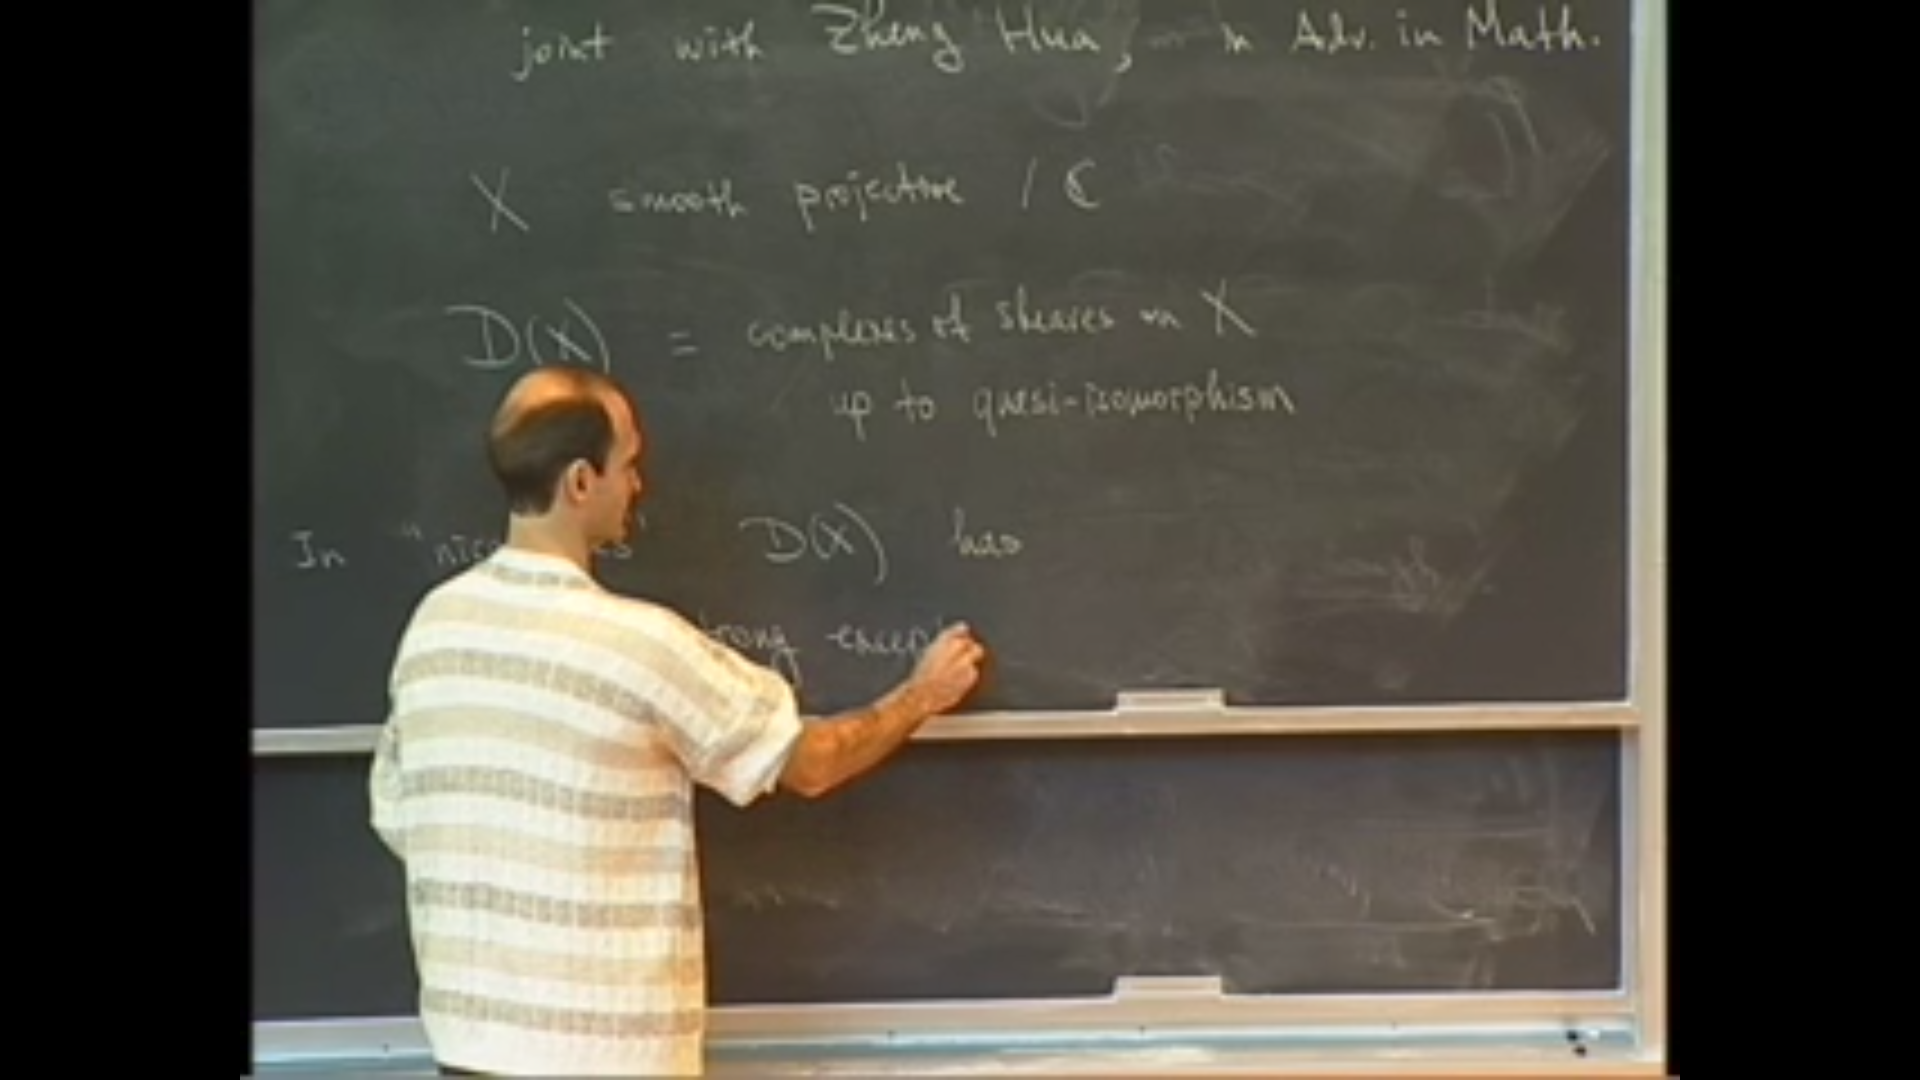 joint with Zheng Hua, in Adv. in Math.
X smooth projective / ℂ
D(X) = complexes of sheaves on X
up to quasi-isomorphism
In " D(X) has